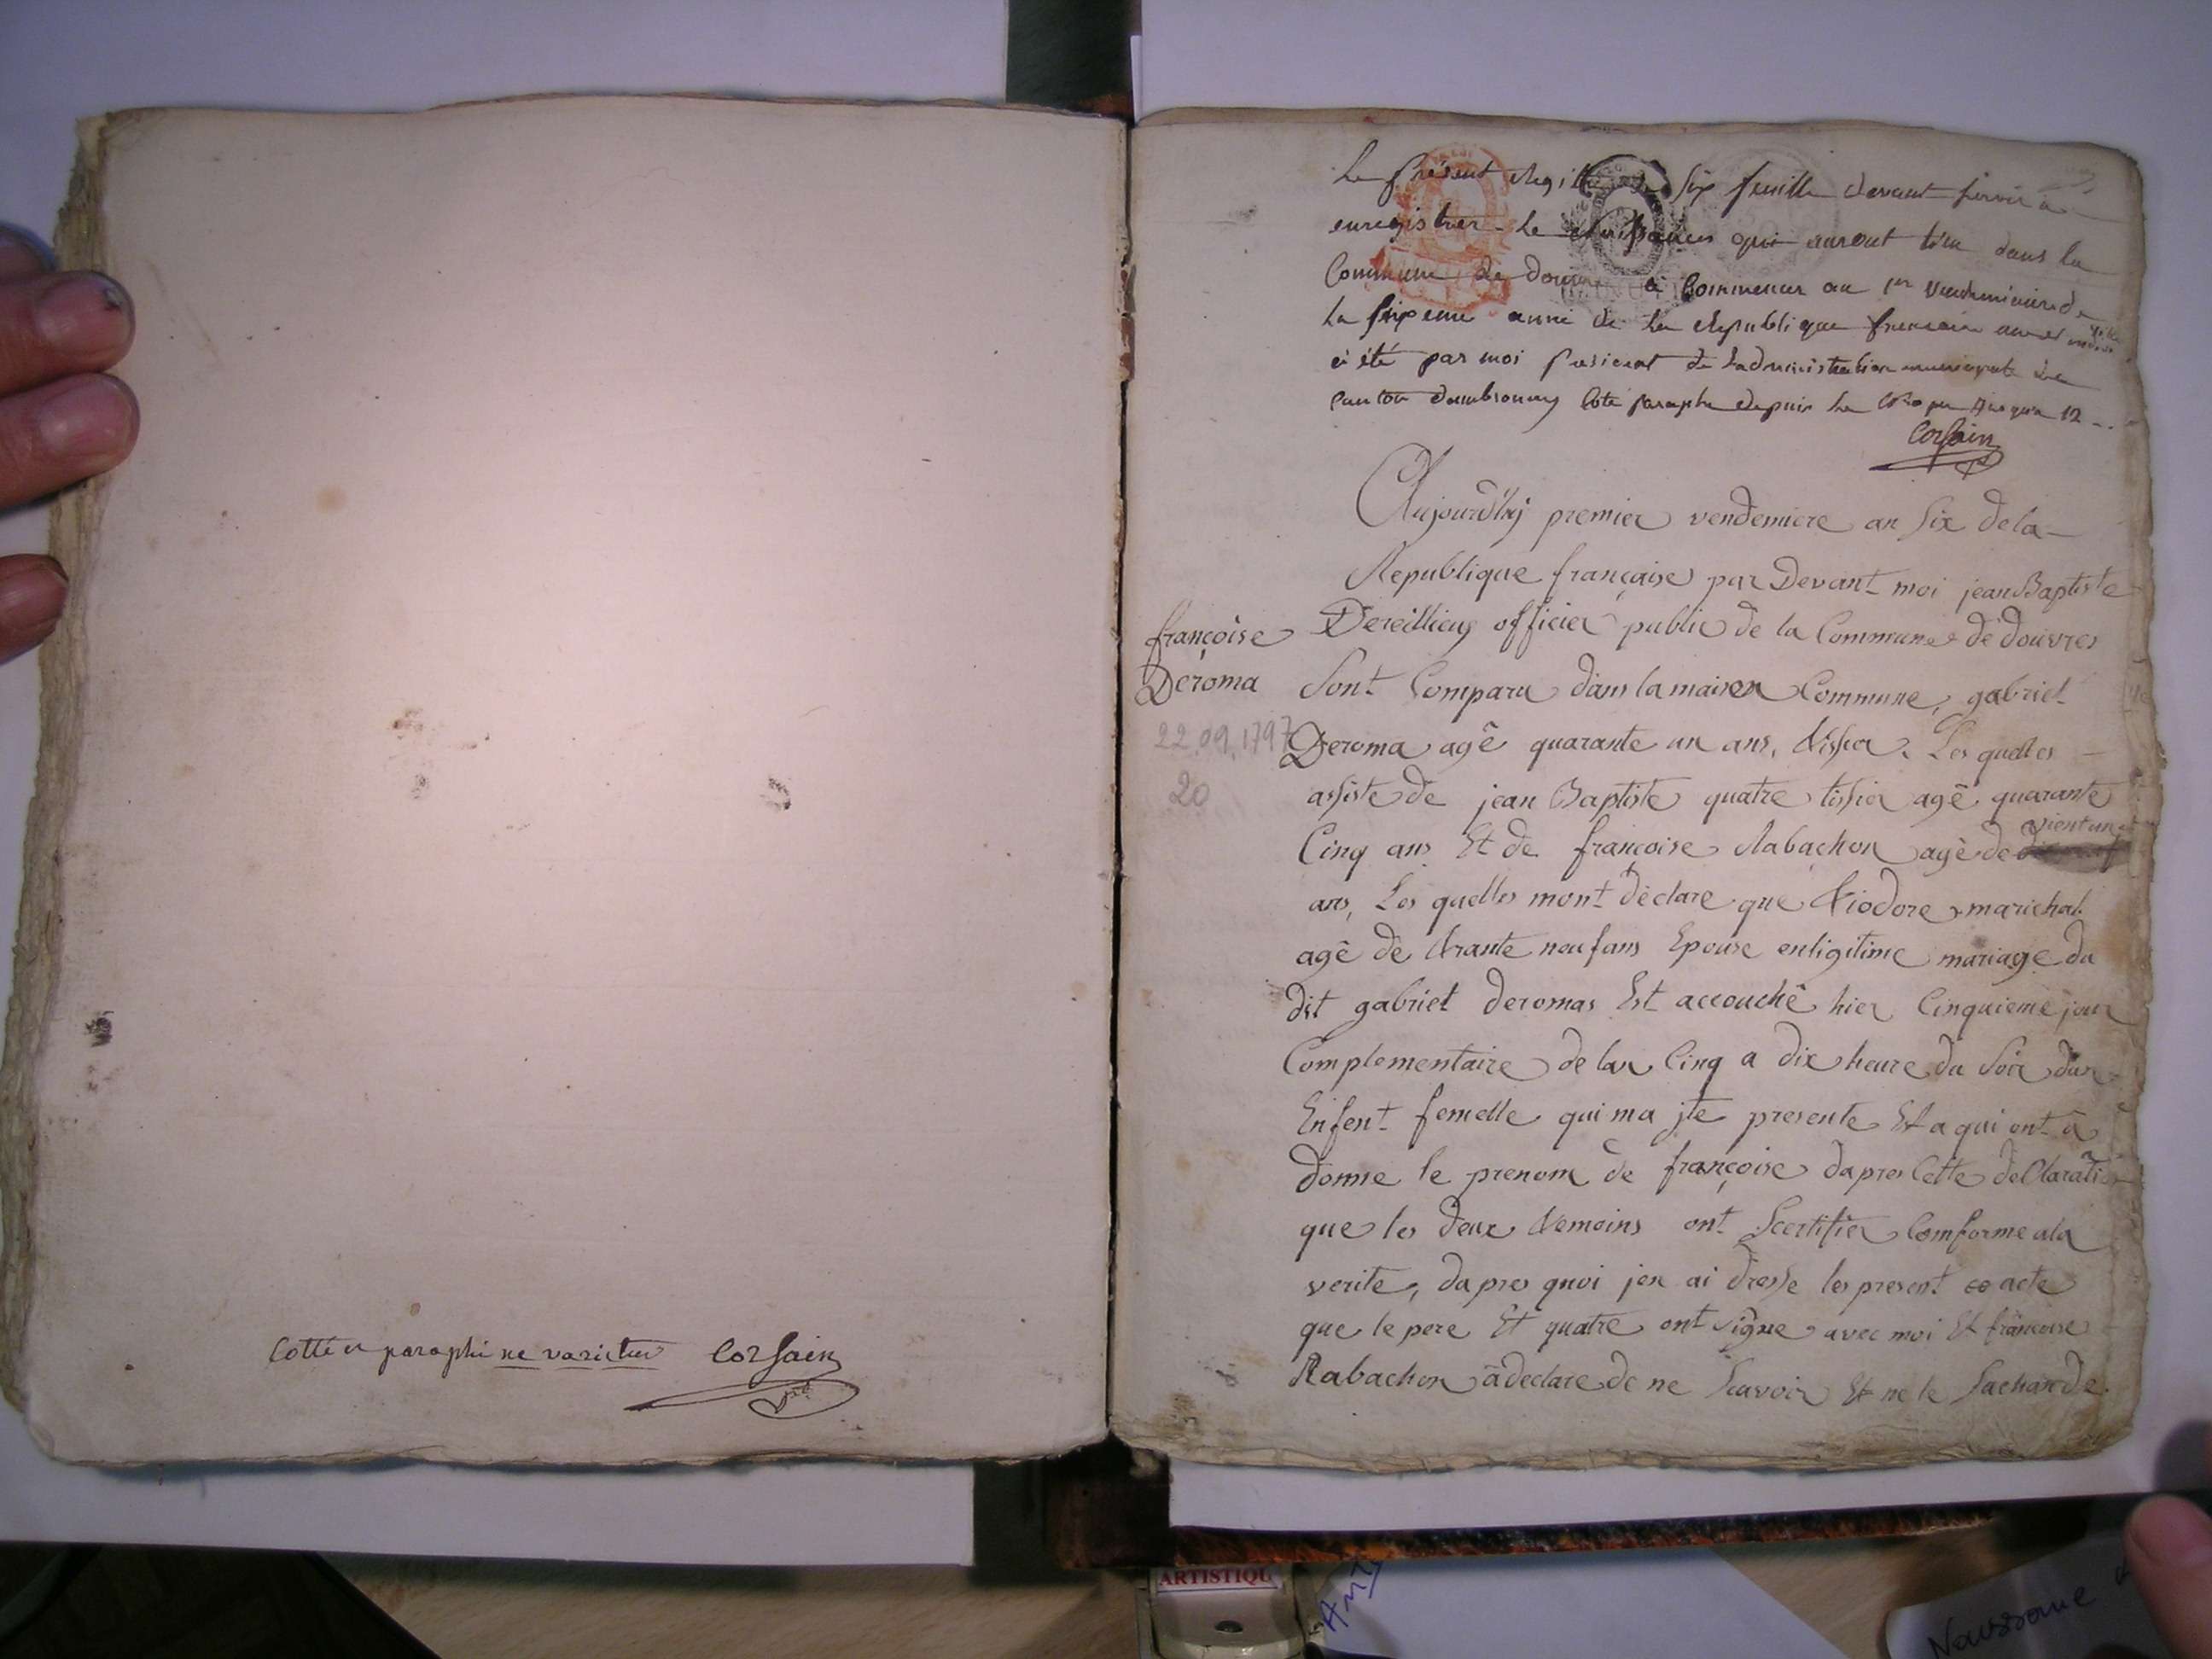 Cotté et paraphé ne varietur Corsain
Le présent de six feuille devant servir a
enregistrer le Naissances qui auront lieu dans la
Commune de Douvre à Commencer au 1er Vendemiaire de
la sixeme anné de la Republique francaise
à été par moi president de Ladministration municipale du
Canton Dambronay Coté paraphé depuis la Jusqua 12
Corsain
Aujourd'huj premier vendemiere an six de la
Republique française par Devant moi jean Baptiste
Dereillieux officier public de la Commune de douvres
Sont Comparu dans la maison Commune, gabriel
françoise
Deroma
22.09.1797
20
Deroma agê quarante un ans, tissier. Les quelles
assiste de jean Baptiste quatre tissier agê quarante
Cinq ans Et de françoise Rabachon agê de vient un
ans, Les quelles mont déclare que Tiodore marichal
agê de trante neuf ans Epouse enligitime mariage du
dit gabriel deromas Est accouchê hier Cinquieme jour
Complementaire de lan Cinq a dix heure du Soir dun
Enfent femelle qui ma jte presente Et a qui ont à
donne le prenom de françoise dapres Cette deClaration
que les deux temoins ont Scertifier Comforme ala
verite, dapres quoi jen ai dresse les present acte
que le pere Et quatre ont signe avec moi Et françoise
Rabachon à declare de ne Scavoir Et ne le Sachande
ARTISTIQU